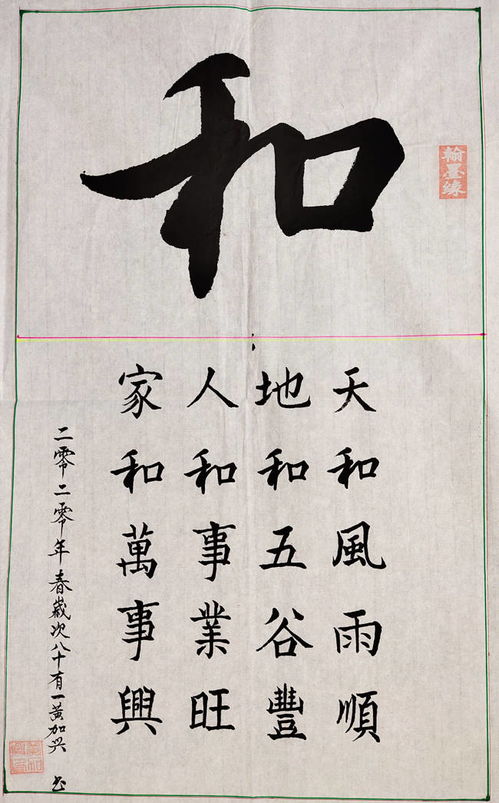 和
翰墨緣
天和風雨順
地和五谷豐
人和事業旺
家和萬事興
二零二零年春歲次八十有一黄加兴 书